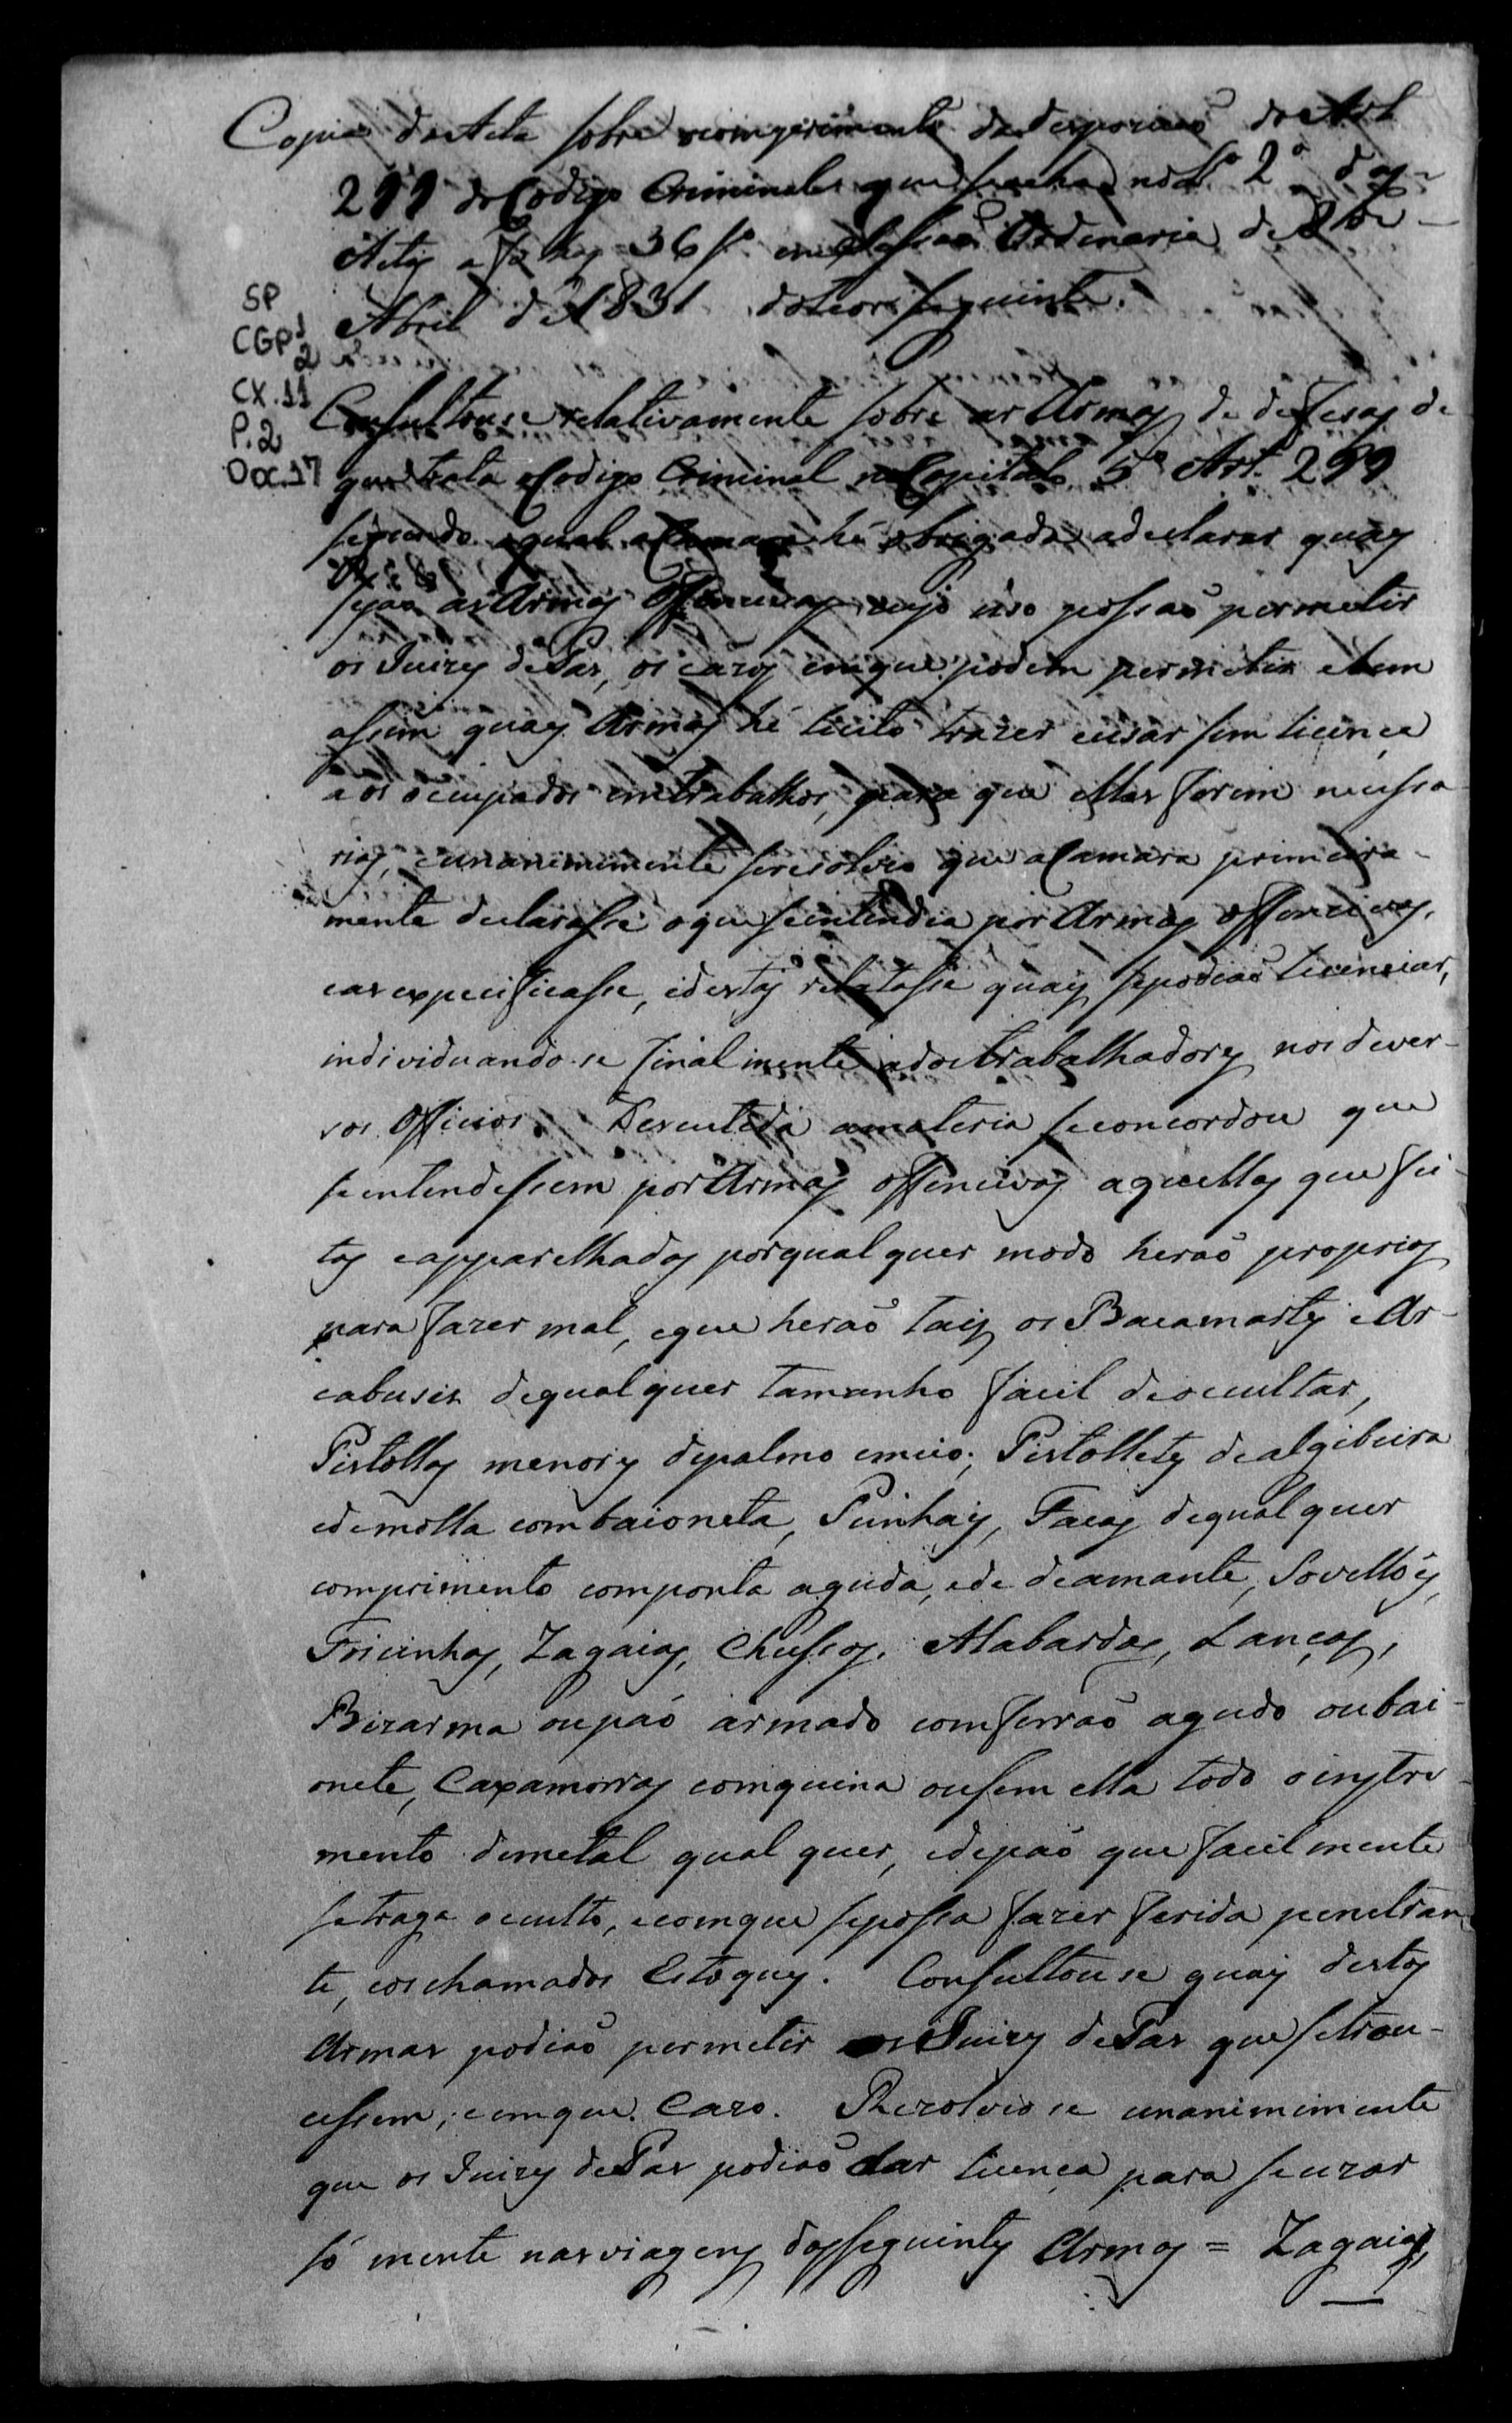 Copia da Acta sobre o comprimento da desposição do Art
299 do Codigo Criminal que se acha no L.º 2º das
Actas a folhas 36 em Sessão Ordenaria de 8 de
Abril de 1831 do teor seguinte.
SP
CGP1
2
CX.11
P.2
Doc.17
Consultouse relativamente sobre as Armas de defesas de
que trata o Codigo Criminal no Capitulo 5º Art. 299
segundo o qual a Camara hé obrigada a declarar quaes
sejão as Armas Offencivas cujo uso possaõ permetir
os Juizes de Pas, os cazos em que podem permetir e bem
assim quaes Armas hé licito trazer e uzar sem licença
aos ocupados em trabalhos, para que ellas forem necessa
rias, e unanimemente se resolveo que a Camara primeira-
mente declarasse o que se entendia por Armas offencivas,
e as expecificasse, e destas relatasse quaes se podiaõ licenciar,
individuando-se finalmente a dos trabalhadores nos diver-
sos Officios. Descutida a materia se concordou que
se entendessem por Armas offencivas aquellas que fei-
tas e apparelhadas por qual quer modo heraõ proprias
para fazer mal, e que heraõ taes os Bacamartes e Ar-
cabuses de qual quer tamanho facil de occultar,
Pistollas menores de palmo e meio; Pistolletes de algibeira
e de molla com baioneta, Punhaes, Facas de qual quer
comprimento com ponta aguda, e de deamante, Sovellões,
Foicinhas, Zagaias, Chussos, Alabardas, Lanças,
Bizarma ou páo armado com ferraõ agudo ou bai-
oneta, Caxamorras com quina ou sem ella todo o instru-
mento de metal qual quer, e de páo que facil mente
se traga occulto, e com que se possa fazer ferida penetran
te, e os chamados Estoques. Consultou se quaes destas
Armas podiaõ permetir os Juizes de Pas que se trou-
cessem; e em que Cazo. Rezolveo se unanimemente
que os Juizes de Pas podiaõ dar licença para se uzar
só mente nas viagens das seguintes Armas = Zagaias,